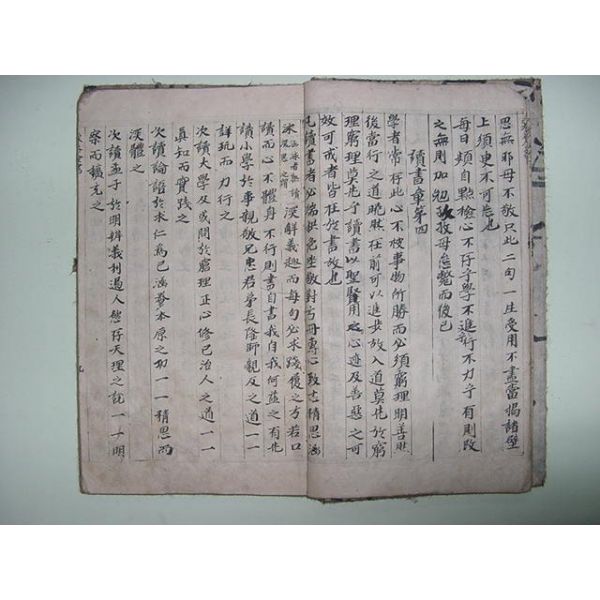 思無邪毋不敬只此二句一生受用不盡當揭諸壁
上須臾不可忘也
每日頻自點檢心不存乎學不進乎行不力乎有則改
之無則加勉孜孜毋怠斃而後已
讀書章第四
學者常存此心不被事物所勝而必須窮理明善然
後當行之道曉然在前可以進步故入道莫先於窮
理窮理莫先乎讀書以聖賢用之心迹及善惡之可
效可戒者皆在於書故也
凡讀書者必端拱危坐敬對方冊專心致志精思涵
泳 涵泳者熟讀深思之謂 深解義趣而每句必求踐履之方若口
讀而心不體身不行則書自書我自我何益之有也
讀小學於事親敬兄忠君弟長隆師親友之道一一
詳玩而力行之
次讀大學及或問於窮理正心修己治人之道一一
眞知而實踐之
次讀論語於求仁爲己涵養本原之功一一精思而
深體之
次讀孟子於明辨義利遏人慾存天理之說一一明
察而擴充之